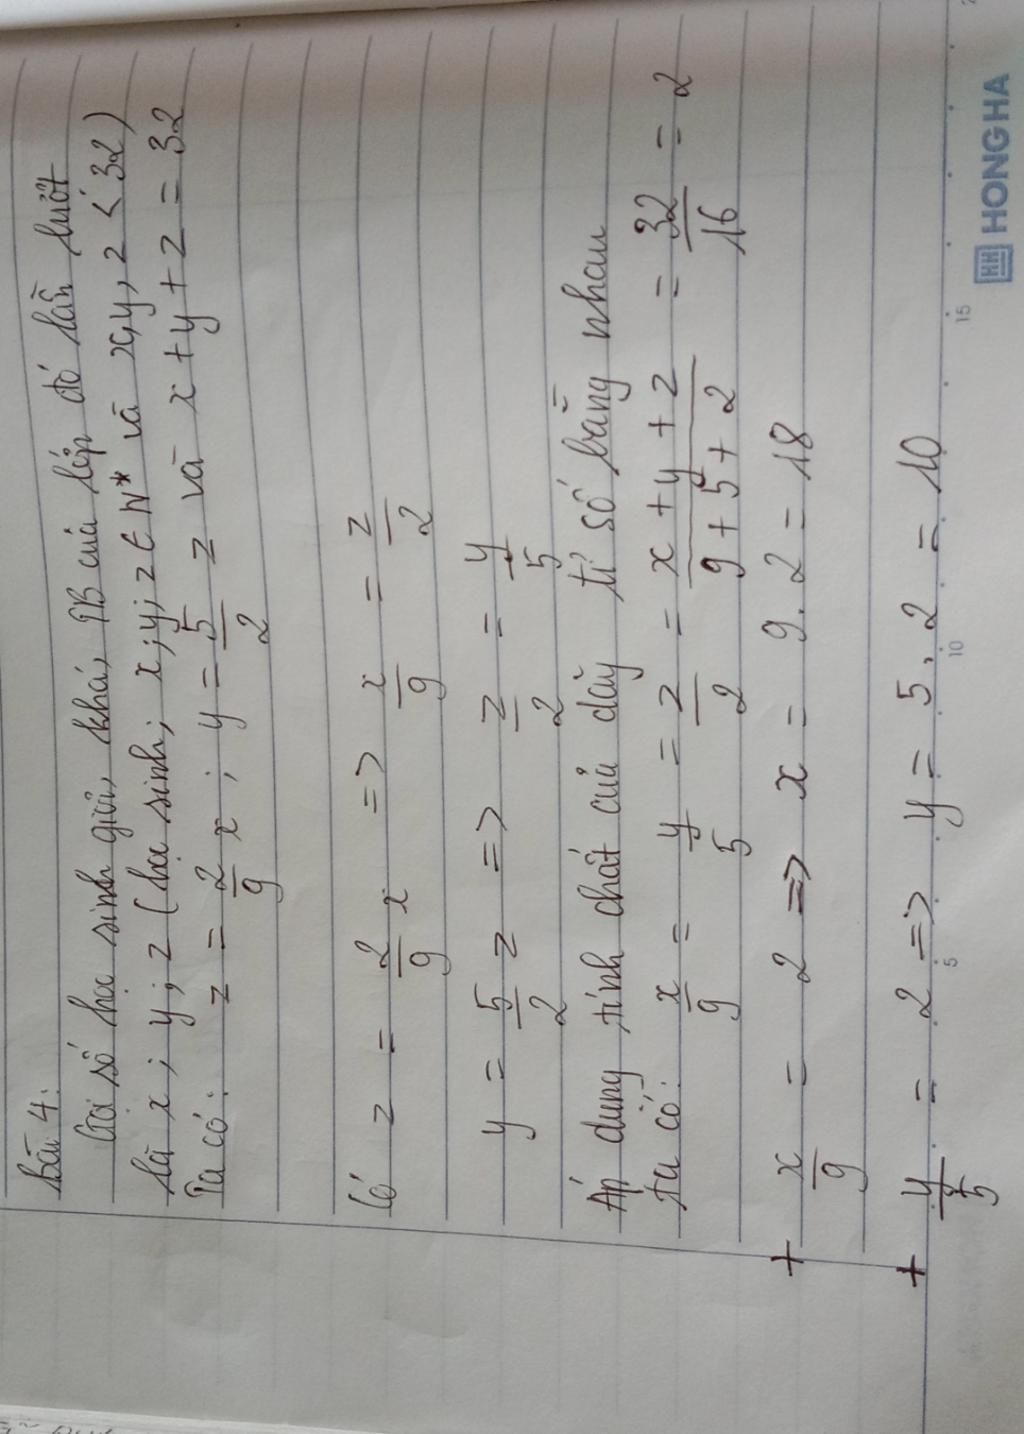 bài 4:
Gọi số học sinh giỏi, khá, TB của lớp đó lần lượt
là x; y; z (học sinh; x; y; z ∈ N* và x, y, z < 32)
Ta có: z = 2/9 x; y = 5/2 z và x + y + z = 32
Có z = 2/9 x => x/9 = z/2
y = 5/2 z => z/2 = y/5
Áp dụng tính chất của dãy tỉ số bằng nhau
ta có: x/9 = y/5 = z/2 = x + y + z / 9 + 5 + 2 = 32/16 = 2
+ x/9 = 2 => x = 9.2 = 18
+ y/5 = 2 => y = 5.2 = 10
5 10 15
HH HONG HA